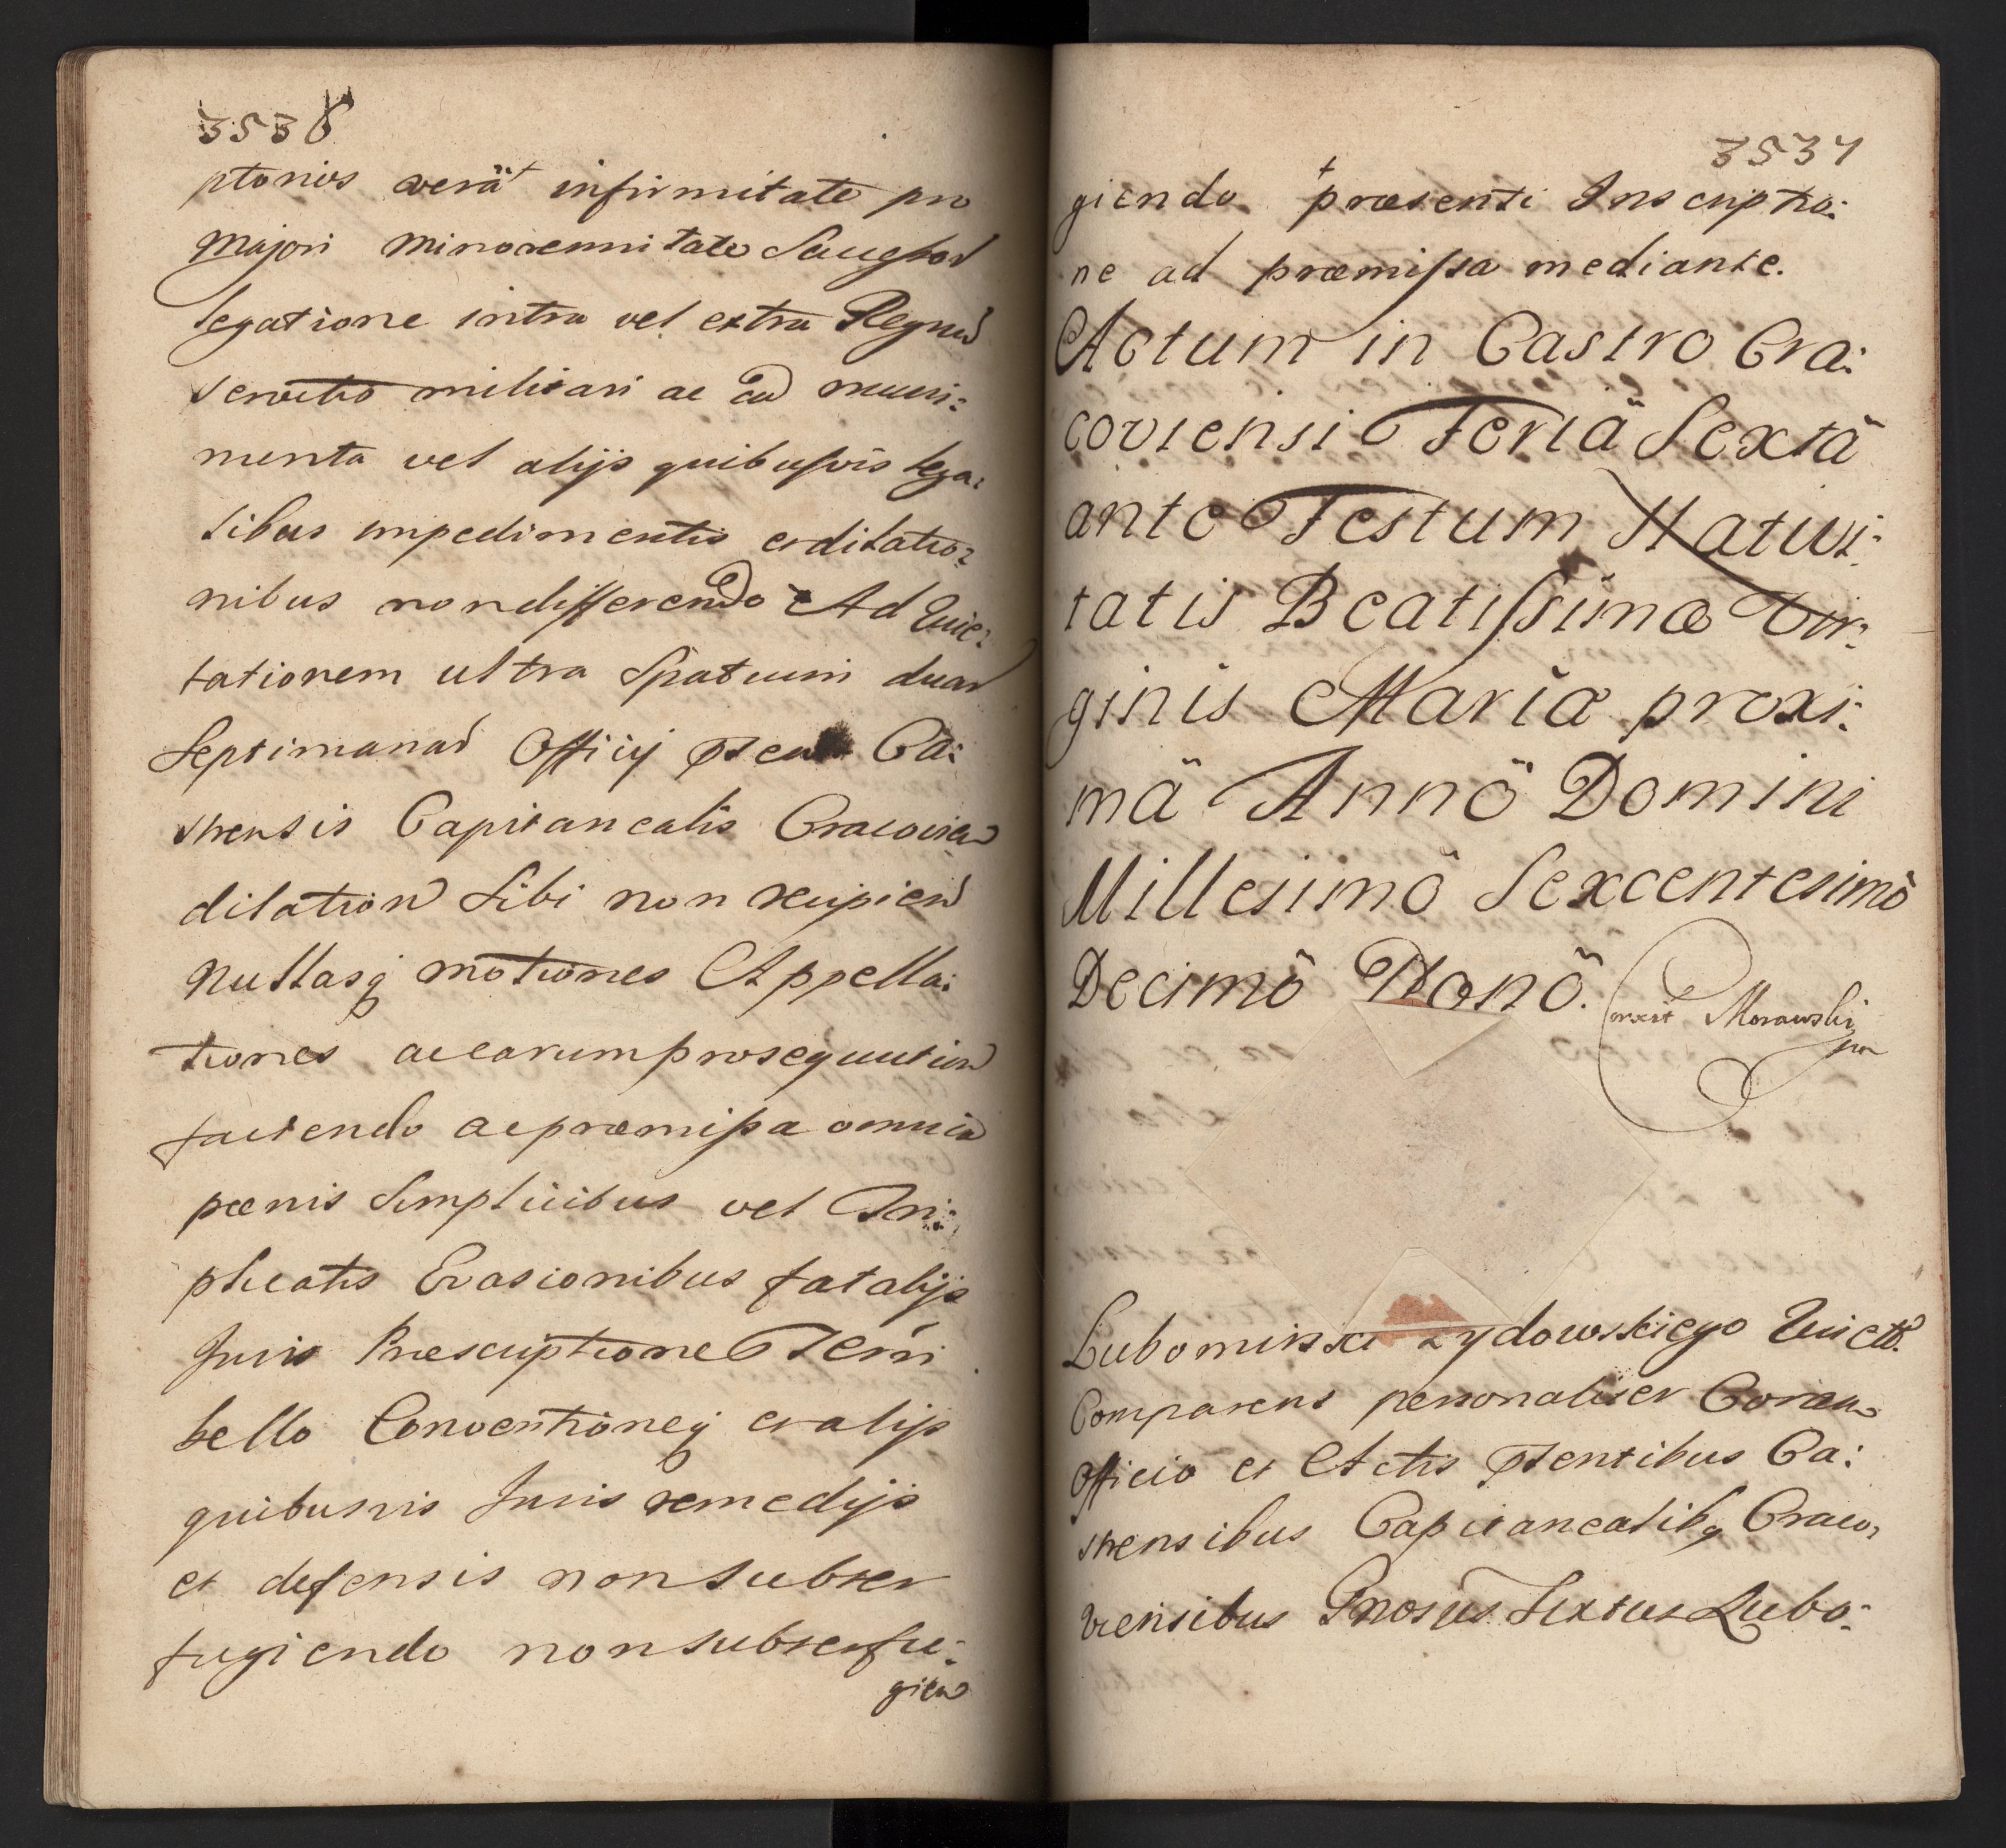 3538
ptorios verä infirmitate pro
Majori Minorennitate
legatione intra vel extra Regnu
servitio militari ac ad muni:
menta vel alijs quibusvis lega:
libus impedimentis et dilatio:
nibus non differendo Ad Quie:
tationem ultra Spatium duar
Septimanar Officij Ca:
strensis Capitanealis Cracovien
dilation Sibi non recipien
Nullasq motiones Appella:
tiones ac earum prosequution
faciendo ac præmissa omnia
pœnis Simplicibus vel
plicatis Evasionibus fatalijs
Juris Præscriptione Terri
bello Conventioneq et alijs
quibusvis Juris remedijs
et defensis non subter
fugiendo non subterfu:
gien
3537
giendo præsenti Inscriptio:
ne ad præmissa mediante.
Actum in Castro Cra:
coviensi Feriä Sextä
ante Festum Nativi:
tatis Beatissimæ Vir:
ginis Mariæ proxi:
mä Annö Domini
Millesimö Sexcentesimö
Decimö Nonö.
Morawski
Lubomirski Zydowskiego Quiett.
Comparens personaliter Coram
Officio et Actis Psentibus Ca:
strensibus Capitanealibq Craco,
viensibus Gnosus Sixtus Lubo: